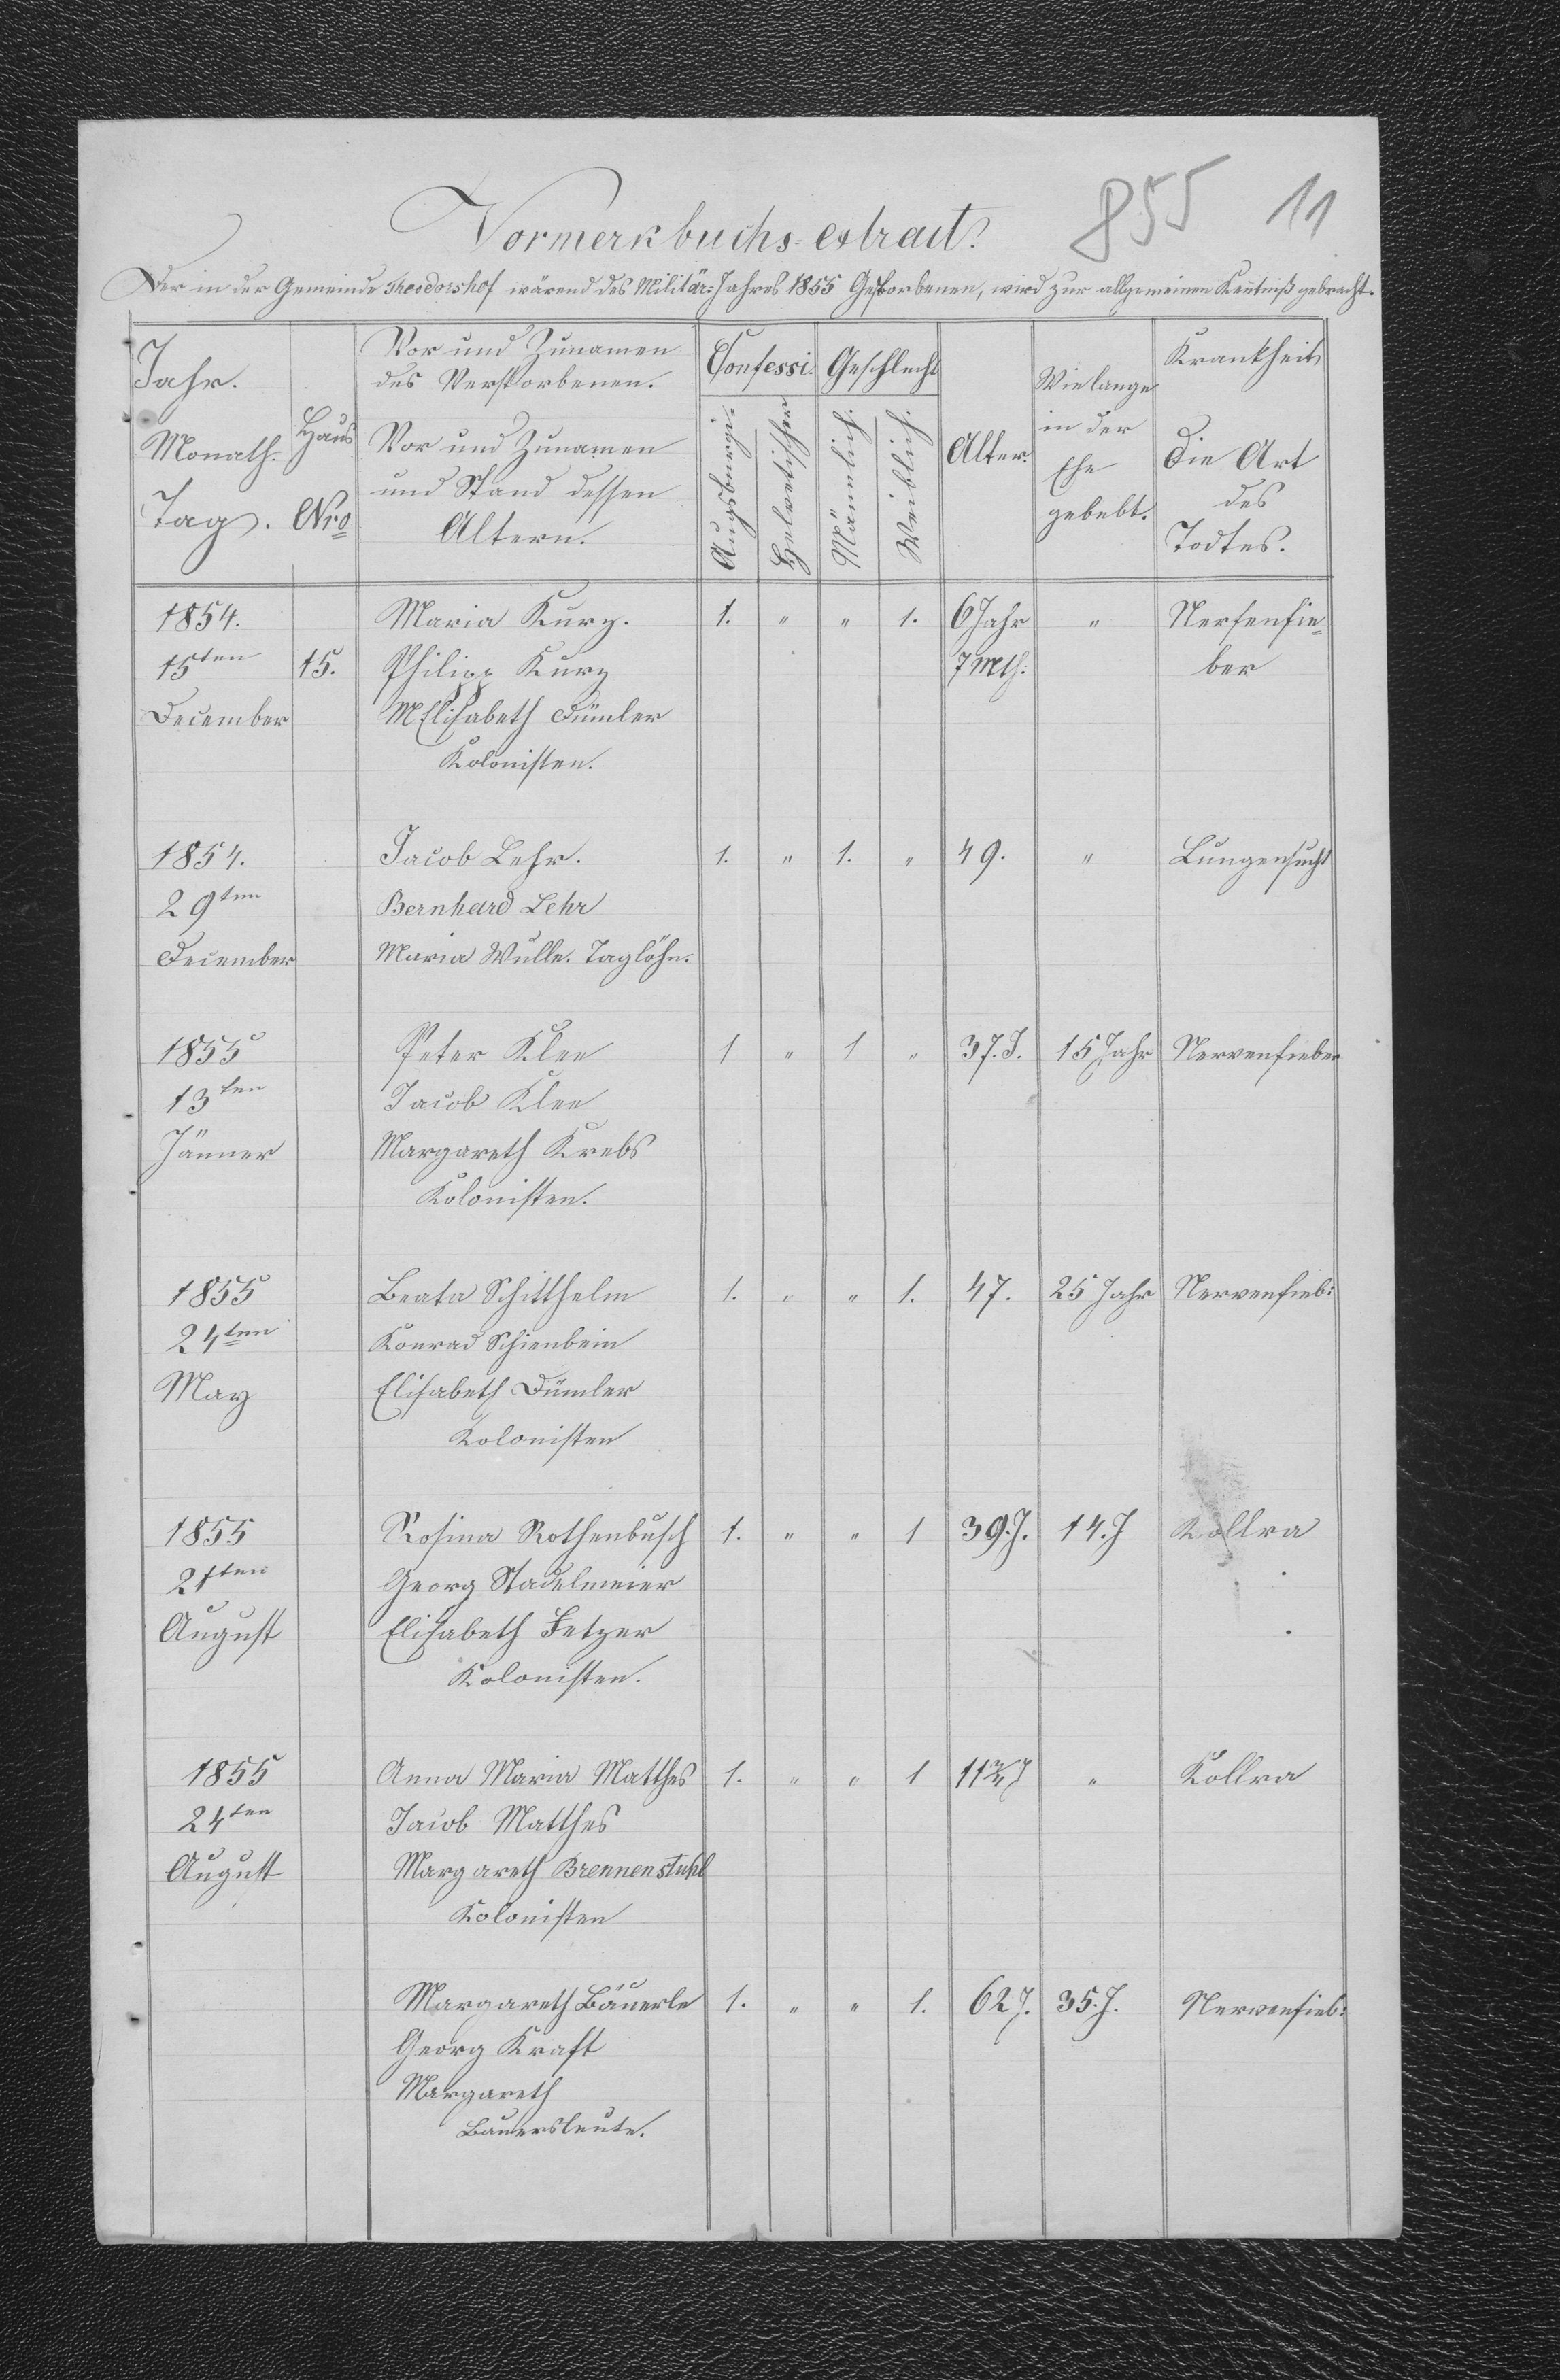 855 11
Vormerkbuchs-extract.
Der in der Gemeinde Theodorshof wärend des Militär-Jahres 1855 Gestorbenen, wird zur allgemeinen Kentniß gebracht.
Jahr. Monath. Tag.
Haus Nro
Vor und Zunamen
des Verstorbenen.
Vor und Zunamen
und Stand dessen
Altern.
Confessi.
Augsburgi-
Helvetischer
Geschlecht
Männlich.
Weiblich.
Alter.
Wie lange
in der
Ehe
gebebt.
Krankheit
Die Art
des
Todtes.
1854. Maria Kurz. 1. " " 1. 6 Jahr " Nerfenfie-
15ten 15. Philipp Kurz 7 Mth: ber
December MElisabeth Dümler
Kolonisten.
1854. Jacob Lehr. 1. " 1. " 49. " Lungensucht
29ten Bernhard Lehr
December Maria Wulle. Taglöhn.
1855 Peter Klee 1 " 1 " 37. J. 15 Jahr Nervenfieber
13ten Jacob Klee
Jänner Margareth Krebs
Kolonisten.
1855 Beata Schitthelm 1. " " 1. 47. 25 Jahr Nervenfieb:
24ten Konrad Schienbein
May Elisabeth Dümler
Kolonisten
1855 Rosina Rothenbusch 1. " " 1 39. J. 14. J Kollra
21ten Georg Stadelmeier
August Elisabeth Fetzer
Kolonisten.
1855 Anna Maria Matthes 1. " " 1 " Kollra
24ten Jacob Matthes
August Margareth Brennenstuhl
Kolonisten
Margareth Bäuerle 1. " " 1. 62 J. 35. J. Nervenfieb:
Georg Kraft
Margareth
Bauersleute.